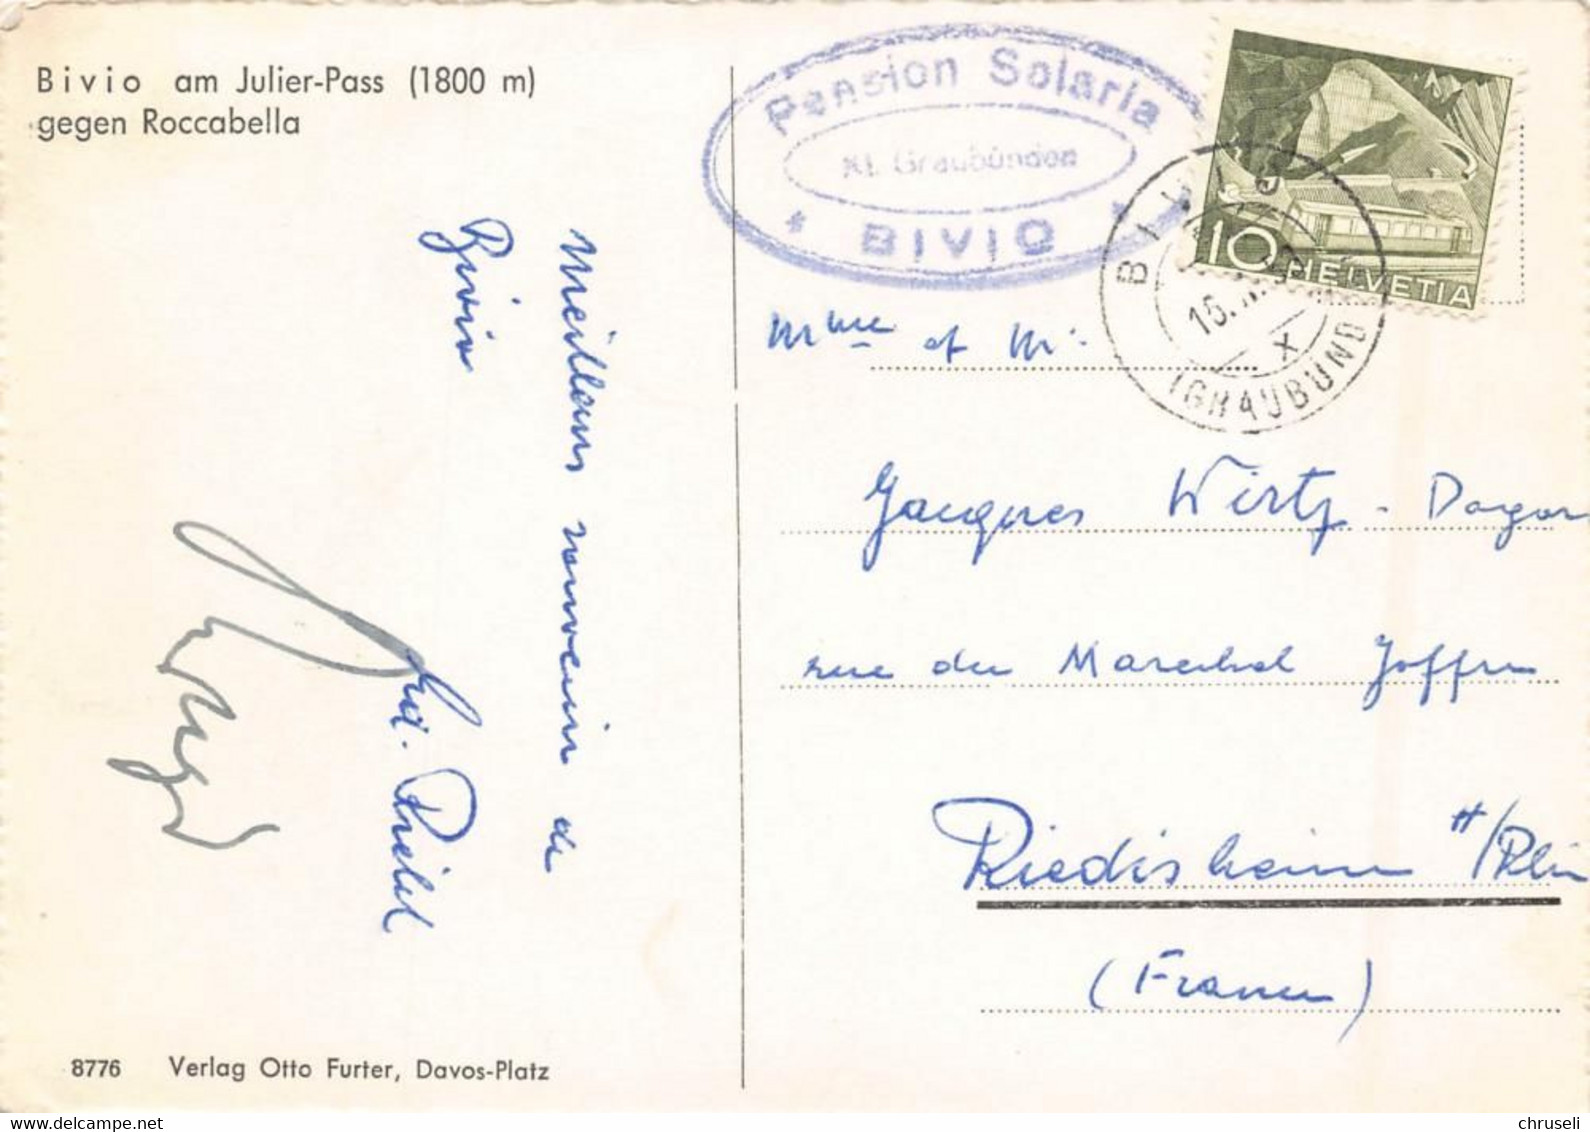 Bivio am Julier-Pass (1800 m)
gegen Roccabella
Meilleurs souvenirs de
Bivio
8776 Verlag Otto Furter, Davos-Platz
Pension Solaria
Kt. Graubünden
* BIVIO *
10 HELVETIA
BIVIO
(GRAUBÜND
Mme et Mr
Jacques Wirtz - Dagon
rue du Marechal Joffre
Riedisheim H/Rhin
(France)
www.delcampe.net
chruseli